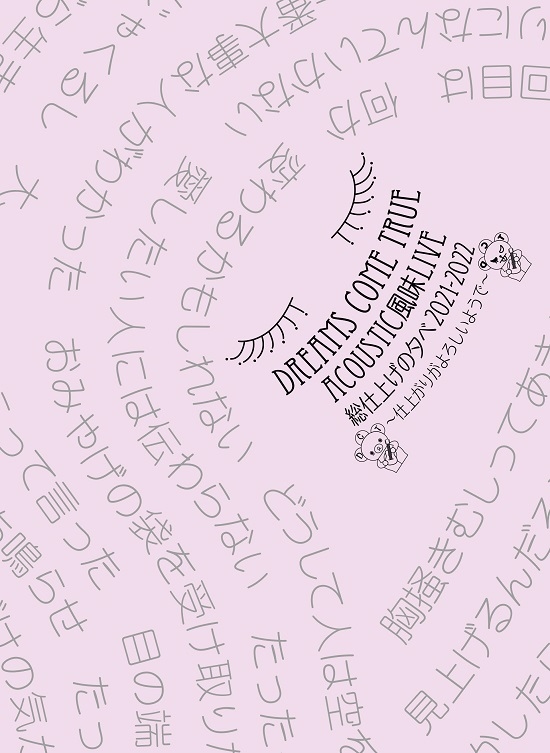 DREAMS COME TRUE
ACOUSTIC風味LIVE
総仕上げの夕べ2021-2022
~仕上がりがよろしいようで~
回目は
何か
変わるかもしれない
りになんていかない
愛したい人には伝わらない
番大事な人がわかった
おみやげの袋を受け取り
じゃくるし
って言った
鳴らせ
どうして人は空
だった
目の端
だっ
けの気
胸掻きむしってあ
見上げるんだ
かした